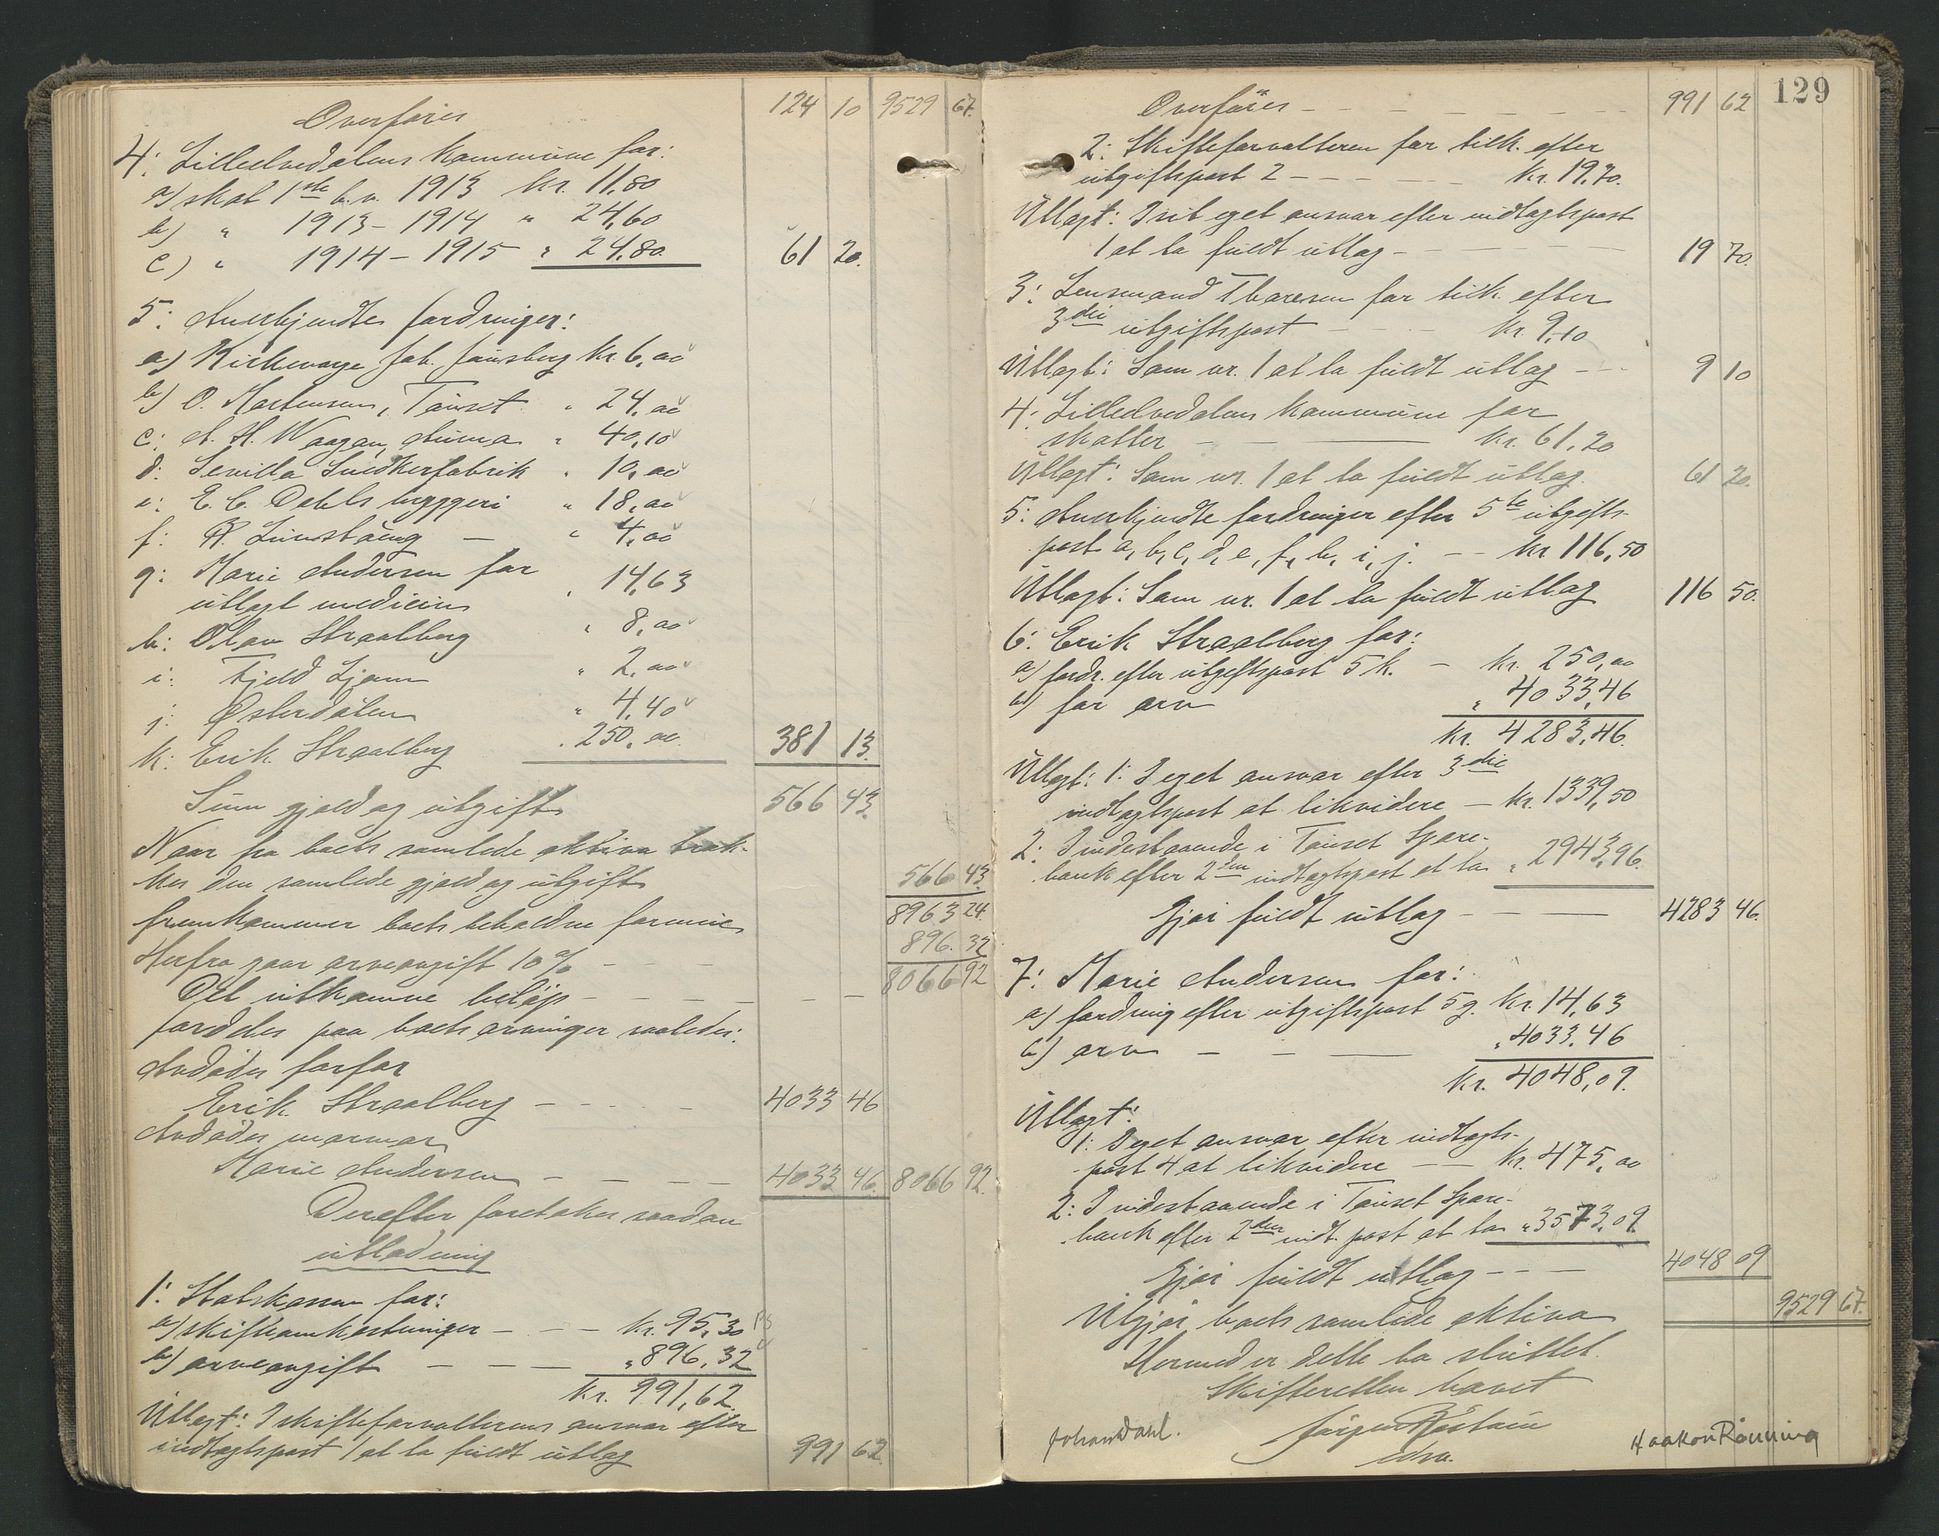 Overføres 124 10 9529 67.
4: Lilleelvedalens kommune for:
a) skat 1ste h.v. 1913 kr. 11,80
b) " 1913-1914 " 24,60
c) " 1914-1915 " 24,80 61 20.
5: Anerkjendte fordringer:
a) Kirkeverge Joh. Jansberg kr. 6,00
b) O. Mortensen, Tønset " 24,00
c: A. H. Waagan, Auma " 40,10
d: Sevilla Snedkerfabrik " 10,00
e: E. C. Dahls bryggeri " 18,00
f: P. Lunstøug - " 4,00
g: Marie Andersen for
utlagt medicin " 14,63
h: Olav Straalberg " 8,00
i: Fjeld Ljom " 2,00
j: Østerdølen " 4,40
k: Erik Straalberg " 250,00 381 13.
Sum gjæld og utgift 566 43.
Naar fra boets samlede aktiva træk-
kes den samlede gjæld og utgift 566 43.
fremkommer boets beholdne formue 8963 24.
Herfra gaar arveavgift 10% - - - 896. 32
Det utkomne beløp - - - - - - 8066 92
fordeles paa boets arvinger saaledes:
Avdødes farfar
Erik Straalberg - - - - 4033 46
Avdødes mormor
Marie Andersen - - - - 4033 46. 8066 92.
Derefter foretokes saadan
utlodning
1: Statskassen for:
a) skifteomkostninger - - - kr. 95,30
b) arveavgift - - - " 896,32
kr. 991,62.
Utlagt: I skifteforvalterens ansvar efter
indtægtspost 1 at ta fuldt utlag 991 62.
129
Overføres - - - - - - 991 62
2: Skifteforvalteren for tilk. efter
utgiftspost 2 - - - - - kr. 19,70.
Utlagt: I sit eget ansvar efter indtægtspost
1 at ta fuldt utlag - - - - - 19 70.
3: Lensmand Thoresen for tilk. efter
3die utgiftspost - - - kr. 9,10
Utlagt: Som nr. 1 at ta fuldt utlag - - - 9 10
4: Lilleelvedalens kommune for
skatter - - - kr. 61,20
Utlagt: Som nr. 1 at ta fuldt utlag. 61 20.
5: Anerkjendte fordringer efter 5te utgifts-
post a, b, c, d, e, f, h, i, j. - - kr 116,50
Utlagt: Som nr. 1 at ta fuldt utlag 116 50.
6: Erik Straalberg for:
a) fordr. efter utgiftspost 5 k. - kr. 250,00
b) for arv " 4033,46
kr. 4283,46.
Utlagt: 1: I eget ansvar efter 3die
indtægtspost at likvidere - kr. 1339,50
2: Indestaaende i Tønset Spare-
bank efter 2den indtægtspost at ta " 2943,96.
Gjør fuldt utlag - - - 4283 46.
7: Marie Andersen for:
a) fordring efter utgiftspost 5 g. kr. 14,63
b) arv - - - " 4033.46
kr. 4048,09.
Utlagt:
1: I eget ansvar efter indtægts-
post 4 at likvidere - - kr. 475,00
2: Indestaaende i Tønset Spare-
bank efter 2den indt. post at ta " 3573,09.
Gjør fuldt utlag - - - 4048 09
9529 67.
Utgjør boets samlede aktiva
Hermed er dette bo sluttet.
Skifteretten hævet
Johan Dahl. Haakon Rønning